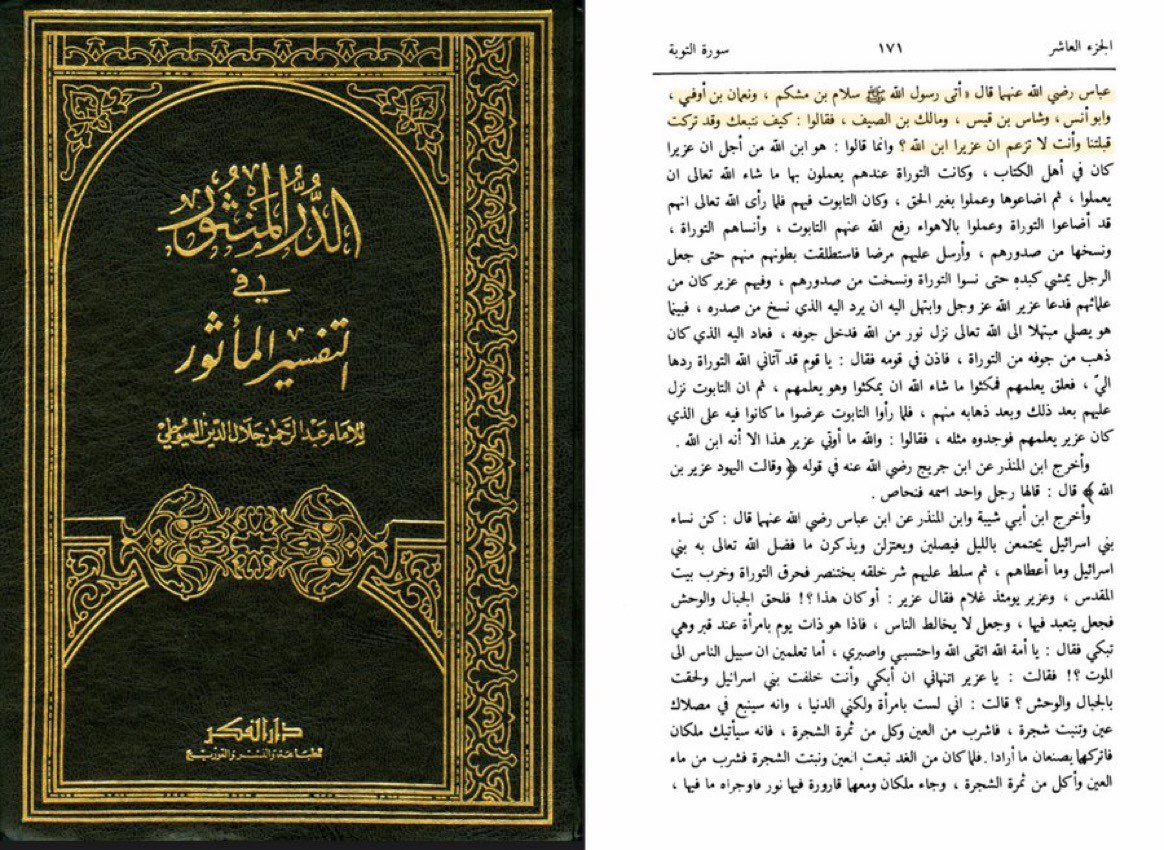 الدر المنثور
في
التفسير المأثور
للامام عبد الرحمن جلال الدين السيوطي
دار الفكر
للطباعة والنشر والتوزيع
الجزء العاشر ١٧١ سورة التوبة
عباس رضي الله عنهما قال « أتى رسول الله ﷺ سلام بن مشكم ، ونعمان بن أوفى ،
وابو أنس ، وشاس بن قيس ، ومالك بن الصيف ، فقالوا : كيف نتبعك وقد تركت
قبلتنا وأنت لا تزعم ان عزيرا ابن الله ؟ وانما قالوا : هو ابن الله من أجل ان عزيرا
كان في أهل الكتاب ، وكانت التوراة عندهم يعملون بها ما شاء الله تعالى ان
يعملوا ، ثم اضاعوها وعملوا بغير الحق ، وكان التابوت فيهم فلما رأى الله تعالى انهم
قد أضاعوا التوراة وعملوا بالاهواء رفع الله عنهم التابوت ، وأنساهم التوراة ،
ونسخها من صدورهم ، وأرسل عليهم مرضا فاستطلقت بطونهم منهم حتى جعل
الرجل يمشي كبده حتى نسوا التوراة ونسخت من صدورهم ، وفيهم عزير كان من
علمائهم فدعا عزير الله عز وجل وابتهل اليه ان يرد اليه الذي نسخ من صدره ، فبينما
هو يصلي مبتهلا الى الله تعالى نزل نور من الله فدخل جوفه ، فعاد اليه الذي كان
ذهب من جوفه من التوراة ، فاذن في قومه فقال : يا قوم قد آتاني الله التوراة ردها
اليّ ، فعلق يعلمهم فمكثوا ما شاء الله ان يمكثوا وهو يعلمهم ، ثم ان التابوت نزل
عليهم بعد ذلك وبعد ذهابه منهم ، فلما رأوا التابوت عرضوا ما كانوا فيه على الذي
كان عزير يعلمهم فوجدوه مثله ، فقالوا : والله ما أوتي عزير هذا الا أنه ابن الله .
وأخرج ابن المنذر عن ابن جريج رضي الله عنه في قوله ﴿ وقالت اليهود عزير بن
الله ﴾ قال : قالها رجل واحد اسمه فنحاص .
وأخرج ابن أبي شيبة وابن المنذر عن ابن عباس رضي الله عنهما قال : كن نساء
بني اسرائيل يجتمعن بالليل فيصلين ويعتزلن ويذكرن ما فضل الله تعالى به بني
اسرائيل وما أعطاهم ، ثم سلط عليهم شر خلقه بختنصر فحرق التوراة وخرب بيت
المقدس ، وعزير يومئذ غلام فقال عزير : أوكان هذا ؟! فلحق الجبال والوحش
فجعل يتعبد فيها ، وجعل لا يخالط الناس ، فاذا هو ذات يوم بامرأة عند قبر وهي
تبكي فقال : يا أمة الله اتقى الله واحتسبي واصبري ، أما تعلمين ان سبيل الناس الى
الموت ؟! فقالت : يا عزير اتنهاني ان أبكي وأنت خلفت بني اسرائيل ولحقت
بالجبال والوحش ؟ قالت : اني لست بامرأة ولكني الدنيا ، وانه سينبع في مصلاك
عين وتنبت شجرة ، فاشرب من العين وكل من ثمرة الشجرة ، فانه سيأتيك ملكان
فاتركهما يصنعان ما أرادا . فلما كان من الغد نبعت العين ونبتت الشجرة فشرب من ماء
العين وأكل من ثمرة الشجرة ، وجاء ملكان ومعهما قارورة فيها نور فاوجراه ما فيها ،